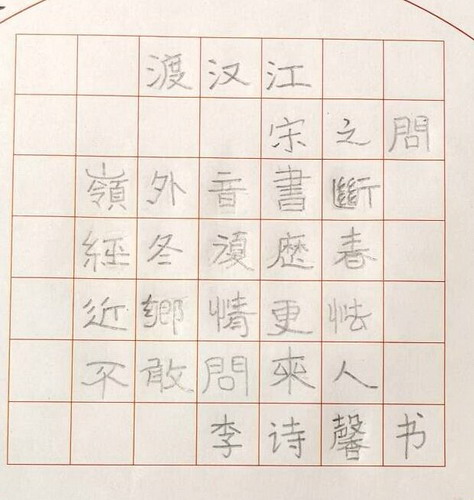 渡汉江
宋之問
嶺外音書斷
經冬復歷春
近鄉情更怯
不敢問來人
李诗馨书